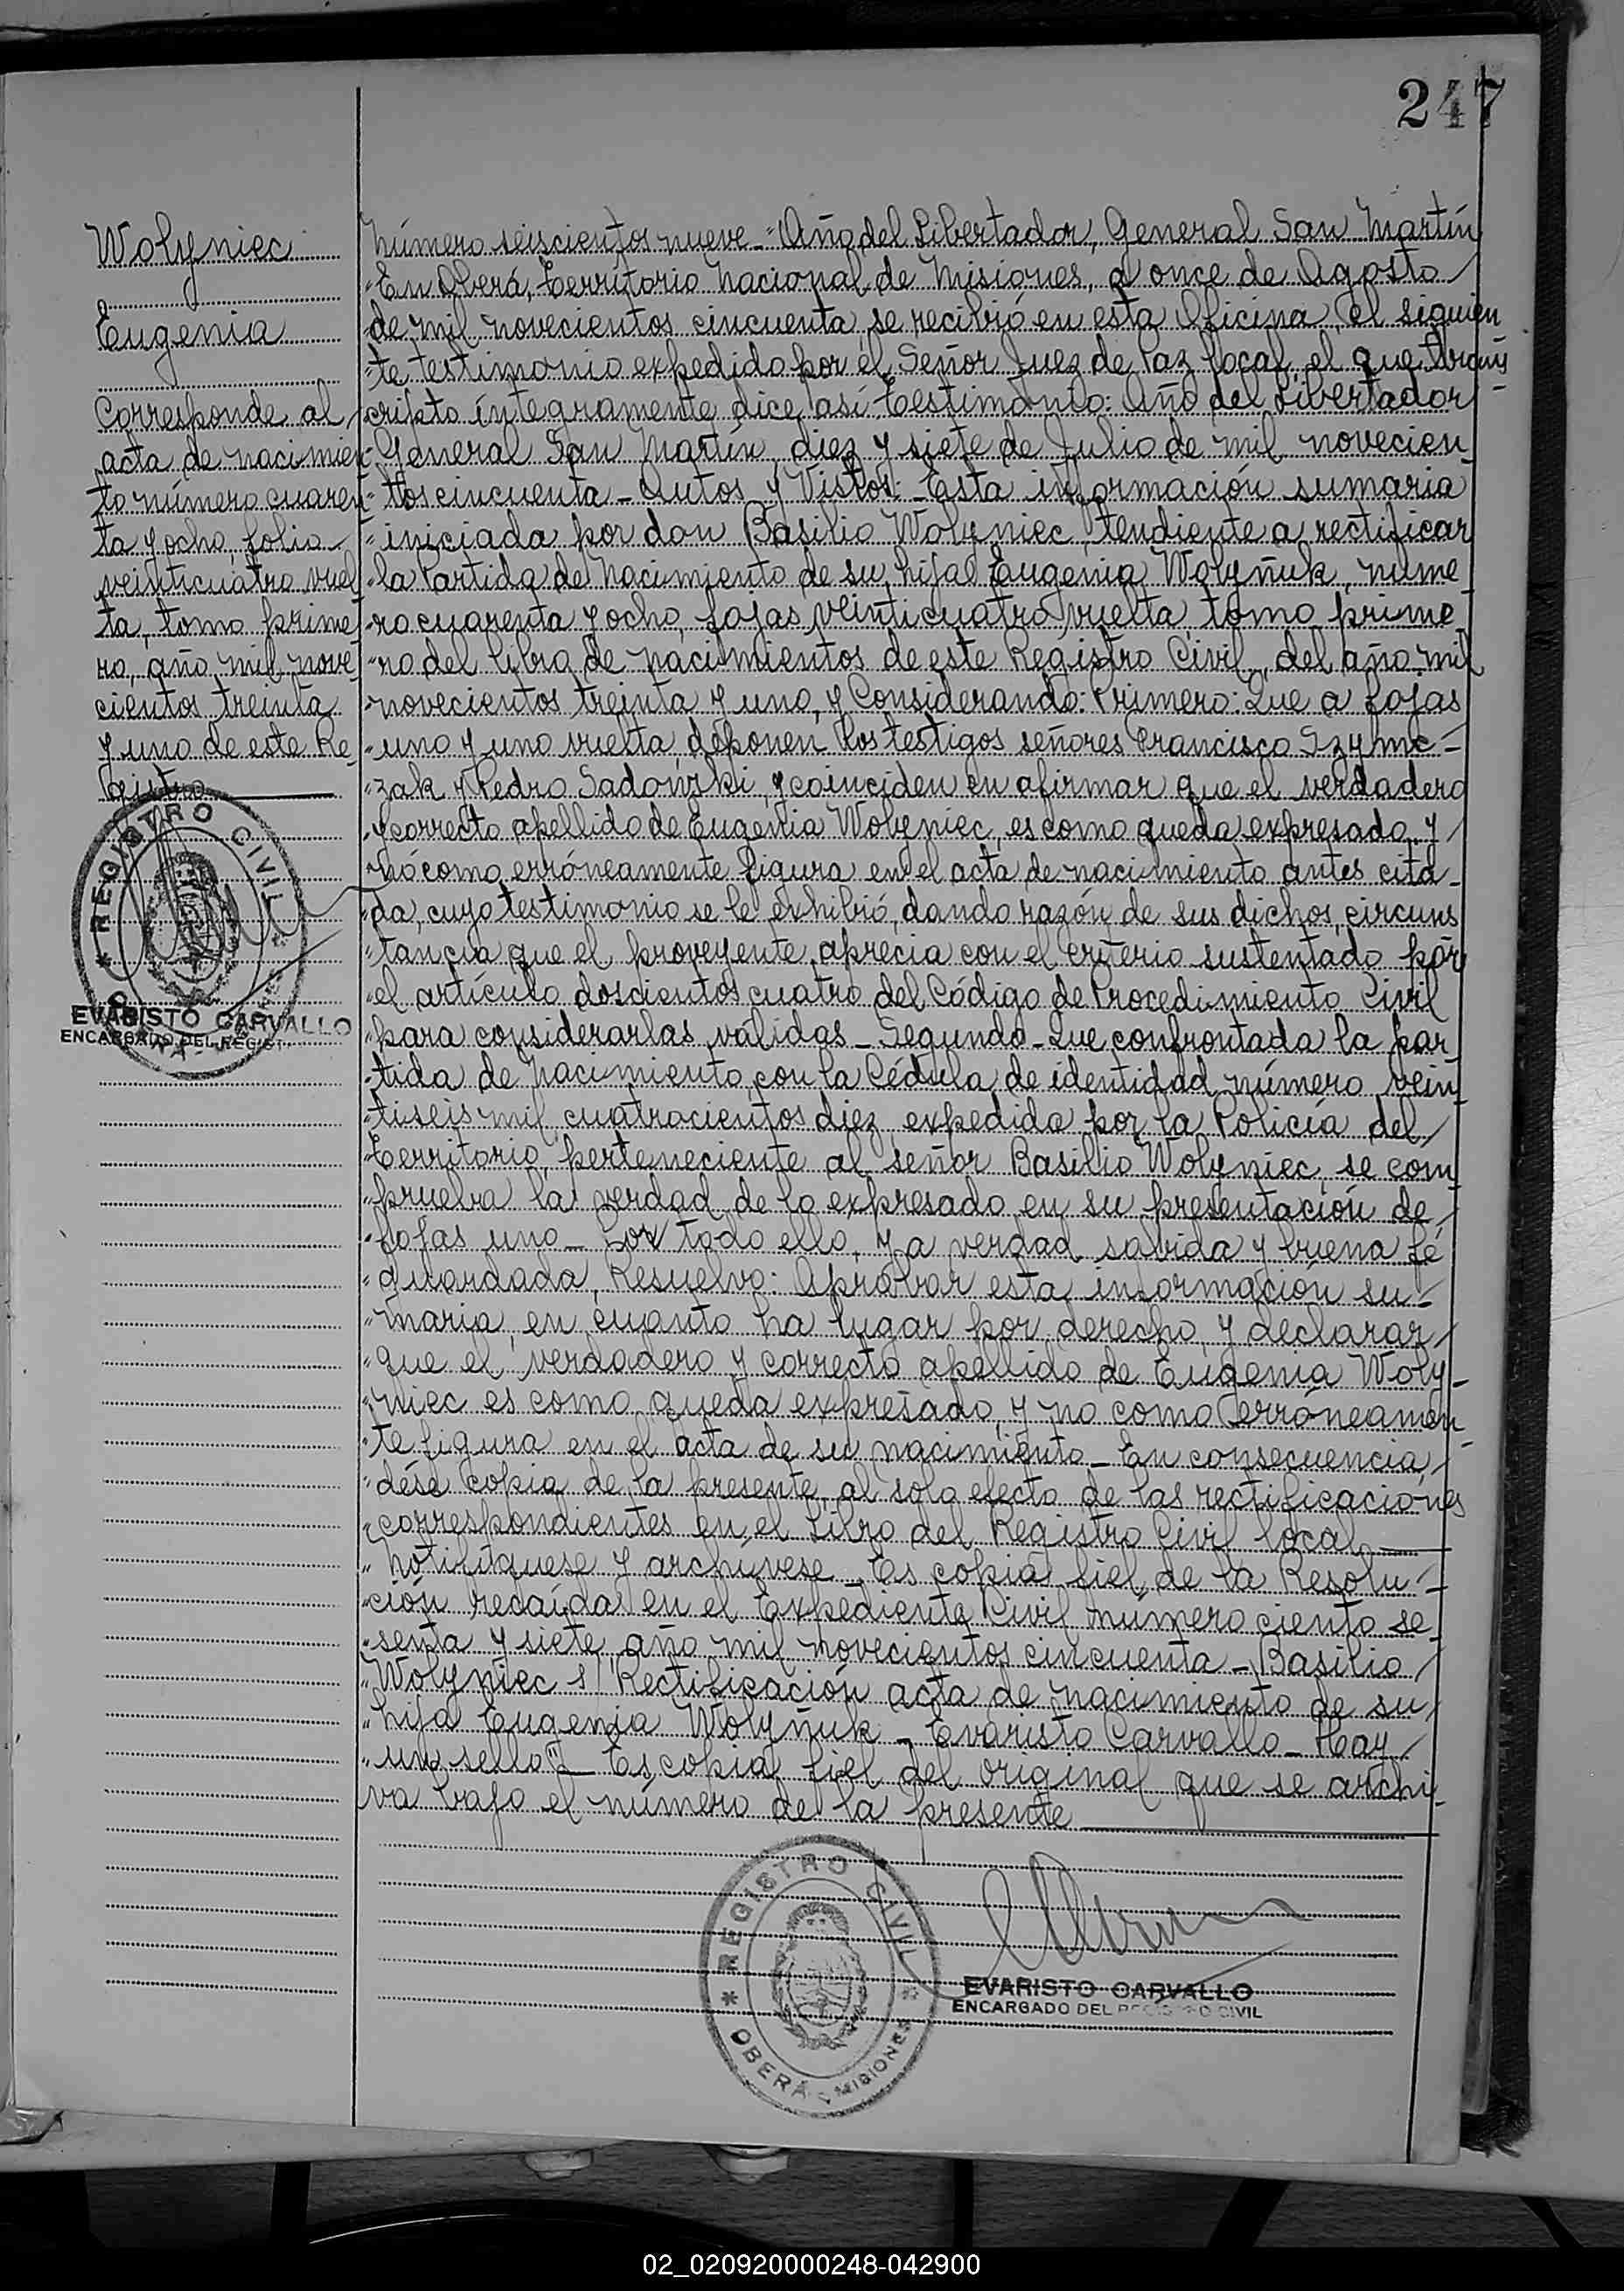 247
Wolyniec
Eugenia
Corresponde al
acta de nacimien-
to número cuaren-
ta y ocho, folio
veinticuatro vuel
ta, tomo prime
ro, año mil nove-
cientos treinta
y uno de este Re-
gistro
REGISTRO CIVIL
EVARISTO CARVALLO
ENCARGADO DEL REGIST
Número seiscientos nueve - "Año del Libertador, General San Martín
"En Oberá, Territorio Nacional de Misiones, a once de Agosto
de mil novecientos cincuenta, se recibió en esta Oficina, el siguien
"te testimonio expedido por el Señor Juez de Paz local, el que trans-
cripto íntegramente dice así: Testimonio: Año del Libertador
"General San Martín, diez y siete de Julio de mil novecien
"tos cincuenta - Autos y Vistos: - Esta información sumaria
"iniciada por don Basilio Wolyniec, tendiente a rectificar
"la Partida de Nacimiento de su hija Eugenia Wolyñuk, núme
"ro cuarenta y ocho, fojas veinticuatro vuelta, tomo prime
"ro del libro de nacimientos de este Registro Civil, del año mil
"novecientos treinta y uno, y Considerando: Primero: Que a fojas
"uno y uno vuelta, deponen los testigos señores Francisco Szymc-
"zak y Pedro Sadowski, y coinciden en afirmar que el verdadero
"y correcto apellido de Eugenia Wolyniec, es como queda expresado, y
"nó como erróneamente figura en el acta de nacimiento antes cita-
"da, cuyo testimonio se le exhibió, dando razón de sus dichos, circuns
"tancia que el proveyente aprecia con el criterio sustentado por
"el artículo doscientos cuatro del Código de Procedimiento Civil
"para considerarlas válidas - Segundo - Que confrontada la par
"tida de Nacimiento, con la Cédula de identidad número vein
"tiseis mil cuatrocientos diez, expedida por la Policía del
"Territorio, perteneciente al señor Basilio Wolyniec, se com
"prueba la verdad de lo expresado en su presentación de
"fojas uno - Por todo ello, y a verdad sabida y buena fé
"guardada, Resuelvo: Aprobar esta información su-
"maria, en cuanto ha lugar por derecho, y declarar
"que el verdadero y correcto apellido de Eugenia Woly-
"niec es como queda expresado, y no como erróneamen-
"te figura en el acta de su nacimiento - En consecuencia,
"dése copia de la presente, al solo efecto de las rectificaciones
"correspondientes en el Libro del Registro Civil local
"Notifíquese y archívese - Es copia fiel de la Resolu-
"ción recaída en el Expediente Civil número ciento se
"senta y siete, año mil novecientos cincuenta - Basilio
"Wolyniec s/ Rectificación acta de nacimiento de su
"hija Eugenia Wolyñuk - Evaristo Carvallo - Hay
"un sello" - Es copia fiel del original que se archi-
va bajo el número de la presente
REGISTRO CIVIL
OBERÁ - MISIONES
EVARISTO CARVALLO
ENCARGADO DEL REGISTRO CIVIL
02_020920000248-042900